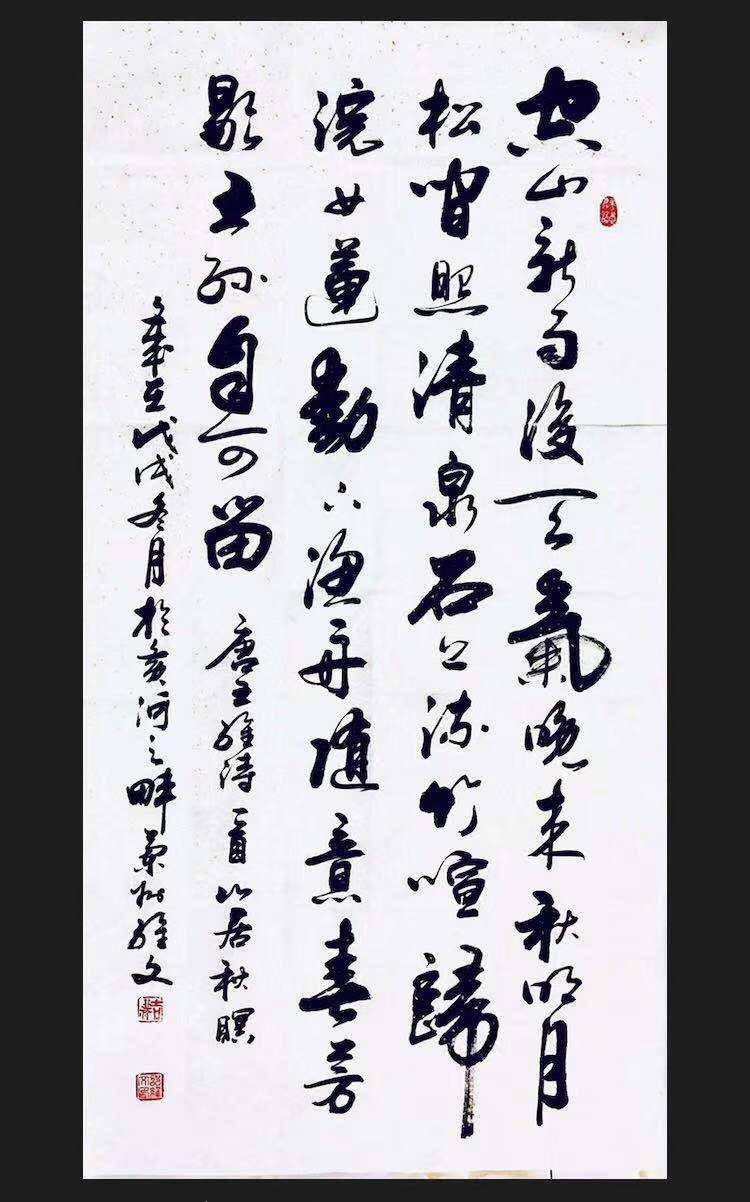 空山新雨後天氣晚來秋明月
松間照清泉石上流竹喧歸
浣女蓮動下漁舟隨意春芳
歇王孫自可留 唐王維詩一首山居秋暝
戊戌冬月於黃河之畔維文